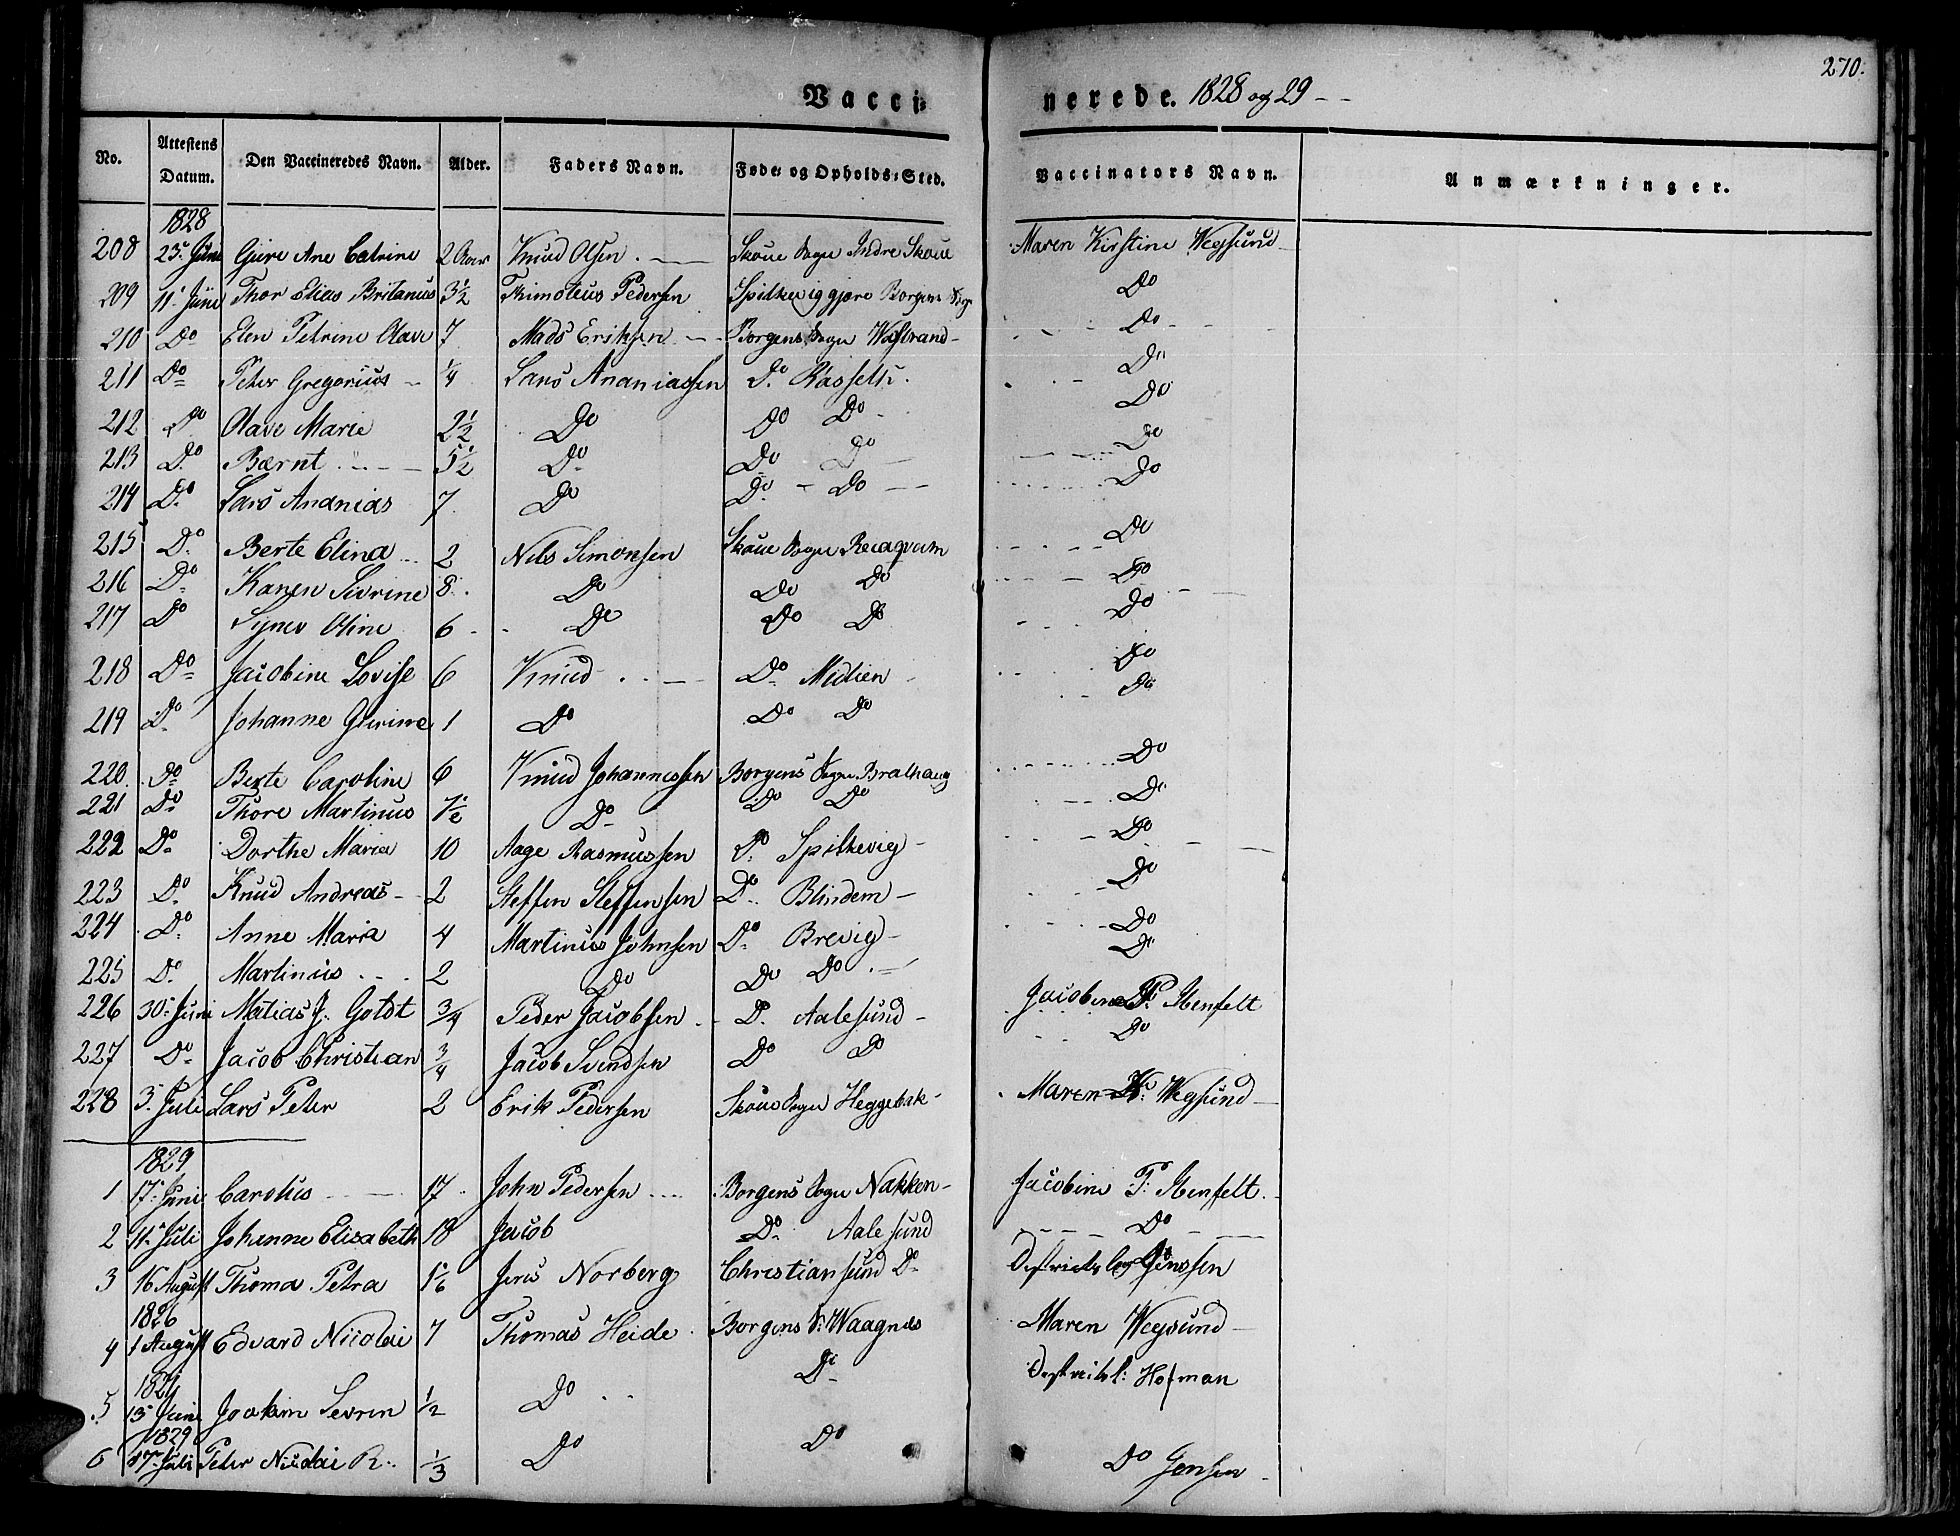 270.
Vacci= nerede. 1828 og 29 - -
No. Attestens Datum. Den Vaccineredes Navn. Alder. Faders Navn. Føde= og Opholds=Sted. Vaccinators Navn. Anmærkninger.
1828
208 23. Juni Gure Ane Catrine 2 Aar Knud Olsen Skoue Sogn Indre Skoue Maren Kirstine Wegsund
209 11. Juni Thor Elias Britanus 3½ Thimoteus Pedersen Borgens Sogn Do
210 Do Elen Petrine Olave 7 Mads Eriksen Borgens Sogn Do
211 Do Peter Gregorius ¼ Lars Ananiassen Do Do
212 Do Olave Marie 2½ Do Do Do Do
213 Do Bærnt 5½ Do Do Do Do
214 Do Lars Ananias 7 Do Do Do Do
215 Do Berte Elina 2 Nils Simonsen Skoue Sogn Do
216 Do Karen Sivrine 8 Do Do Do Do
217 Do Synev Oline 6 Do Do Do Do
218 Do Jacobine Lovise 6 Knud Do Do
219 Do Johanne Gurine 1 Do Do Do Do
220 Do Berte Caroline 6 Knud Johannessen Borgens Sogn Bralhaug Do
221 Do Thore Martinus 1½ Do Do Do Do
222 Do Dorthe Maria 10 Aage Rasmussen Do Spilkevig Do
223 Do Knud Andreas 2 Steffen Steffensen Do Blindem Do
224 Do Anne Maria 4 Martinus Johnsen Do Brevig Do
225 Do Martinus 2 Do Do Do Do
226 30. Juni Matias J. Goldt ¾ Peder Jacobsen D. Aalesund Jacobine P. Stenfelt
227 Do Jacob Christian ¾ Jacob Svendsen Do Do Do
228 3. Juli Lars Peter 2 Erik Pedersen Skoue Sogn Heggebak Maren K. Wegsund
1829
1 17. Juni Carolus 17 John Pedersen Borgens Sogn Nakken Jacobine P. Stenfelt
2 11. Juli Johanne Elisabeth 18 Jacob Do Aalesund Do
3 16 August Thoma Petra Jens Norberg Christiansund Do
1826
4 1 August Edvard Nicolai 7 Thomas Heide Borgens S. Waagnes Maren Wegsund
5 13. Juni Joakim Sevrin ½ Do Do Hofman
1829
6 17. Juli Peter Nicolai R. ⅓ Do Do Do Jensen